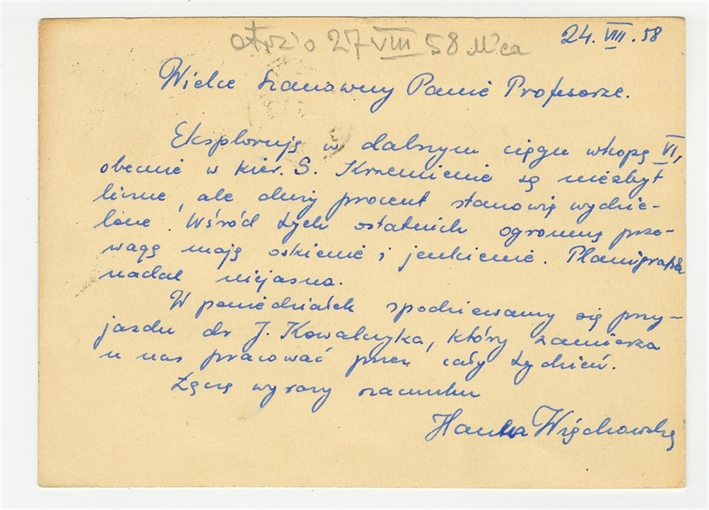 otrz. 27 VIII 58
24. VIII. 58
Wielce Szanowny Panie Profesorze.
Eksplorują w dalszym ciągu wkopę VI,
obecnie w kier. S. Krzemienie są niezbyt
liczne, ale duży procent stanowią wydzie-
lone. Wśród tych ostatnich ogromną prze-
wagę mają ostkienie i jenkienie. Planigrafia
nadal niejasna.
W poniedziałek spodziewamy się przy-
jazdu dr J. Kowalczyka, który zamierza
u nas pracować przez cały tydzień.
Łączę wyrazy szacunku
Hanka Więckowska